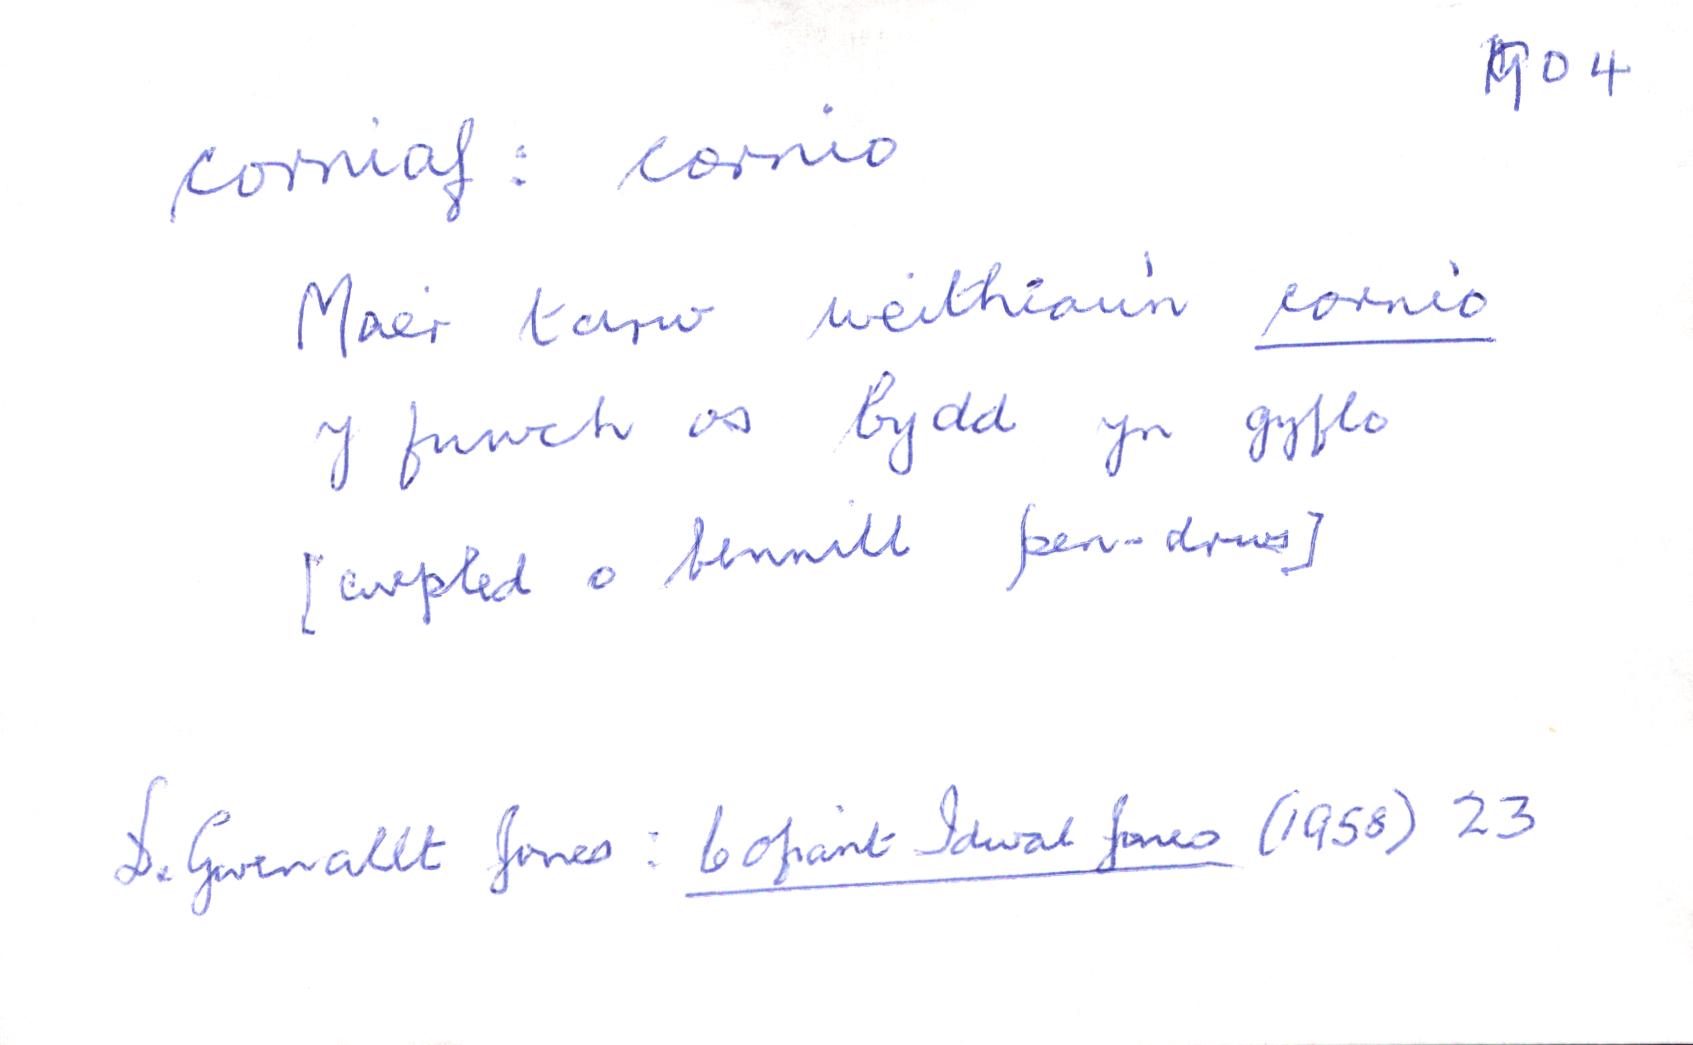 1904
corniaf: cornio
Mae'r tarw weithiau'n cornio
y fuwch os bydd yn gyflo
[cwpled o bennill pen-drws]
D. Gwenallt Jones: Cofiant Idwal Jones (1958) 23